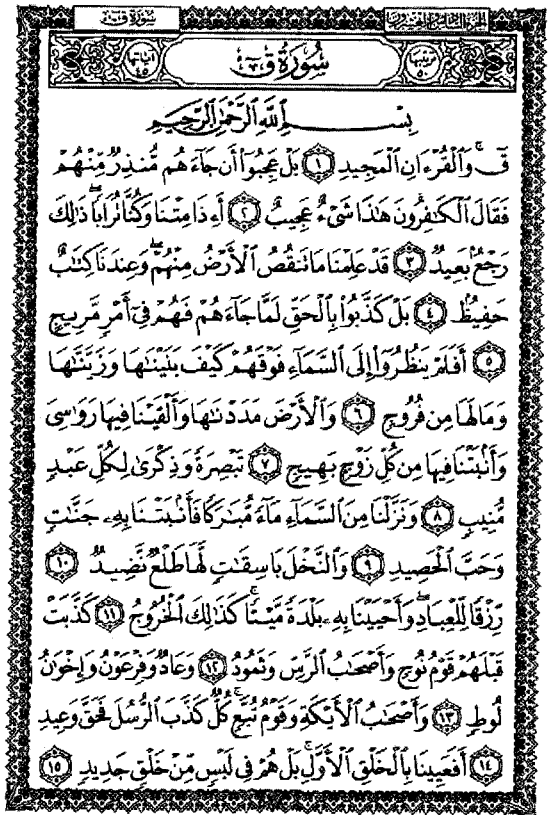 سورة ق
الجزء السادس والعشرون
ترتيبها ٥٠
سورة ق
آياتها ٤٥
بِسْمِ اللَّهِ الرَّحْمَٰنِ الرَّحِيمِ
قٓ ۚ وَالْقُرْءَانِ الْمَجِيدِ ١ بَلْ عَجِبُوٓا۟ أَن جَآءَهُم مُّنذِرٌ مِّنْهُمْ
فَقَالَ الْكَٰفِرُونَ هَٰذَا شَىْءٌ عَجِيبٌ ٢ أَءِذَا مِتْنَا وَكُنَّا تُرَابًا ۖ ذَٰلِكَ
رَجْعٌۢ بَعِيدٌ ٣ قَدْ عَلِمْنَا مَا تَنقُصُ الْأَرْضُ مِنْهُمْ ۖ وَعِندَنَا كِتَٰبٌ
حَفِيظٌۢ ٤ بَلْ كَذَّبُوا۟ بِالْحَقِّ لَمَّا جَآءَهُمْ فَهُمْ فِىٓ أَمْرٍ مَّرِيجٍ
٥ أَفَلَمْ يَنظُرُوٓا۟ إِلَى السَّمَآءِ فَوْقَهُمْ كَيْفَ بَنَيْنَٰهَا وَزَيَّنَّٰهَا
وَمَا لَهَا مِن فُرُوجٍ ٦ وَالْأَرْضَ مَدَدْنَٰهَا وَأَلْقَيْنَا فِيهَا رَوَٰسِىَ
وَأَنۢبَتْنَا فِيهَا مِن كُلِّ زَوْجٍۭ بَهِيجٍ ٧ تَبْصِرَةً وَذِكْرَىٰ لِكُلِّ عَبْدٍ
مُّنِيبٍ ٨ وَنَزَّلْنَا مِنَ السَّمَآءِ مَآءً مُّبَٰرَكًا فَأَنۢبَتْنَا بِهِۦ جَنَّٰتٍ
وَحَبَّ الْحَصِيدِ ٩ وَالنَّخْلَ بَاسِقَٰتٍ لَّهَا طَلْعٌ نَّضِيدٌ ١٠
رِّزْقًا لِّلْعِبَادِ ۖ وَأَحْيَيْنَا بِهِۦ بَلْدَةً مَّيْتًا ۚ كَذَٰلِكَ الْخُرُوجُ ١١ كَذَّبَتْ
قَبْلَهُمْ قَوْمُ نُوحٍ وَأَصْحَٰبُ الرَّسِّ وَثَمُودُ ١٢ وَعَادٌ وَفِرْعَوْنُ وَإِخْوَٰنُ
لُوطٍ ١٣ وَأَصْحَٰبُ الْأَيْكَةِ وَقَوْمُ تُبَّعٍ ۚ كُلٌّ كَذَّبَ الرُّسُلَ فَحَقَّ وَعِيدِ
١٤ أَفَعَيِينَا بِالْخَلْقِ الْأَوَّلِ ۚ بَلْ هُمْ فِى لَبْسٍ مِّنْ خَلْقٍ جَدِيدٍ ١٥